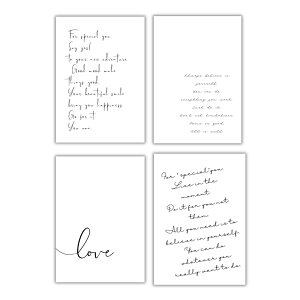 For special you
Say yes!
to your new adventure
Good mood make
things good
Your beautiful smile
bring you happiness
Go for it
You can
Always believe in
yourself
You can do
everything you want
love
For special you
Live in the
moment
Do it for you not
them
All you need is to
believe in yourself
You can do
whatever you
really want to do